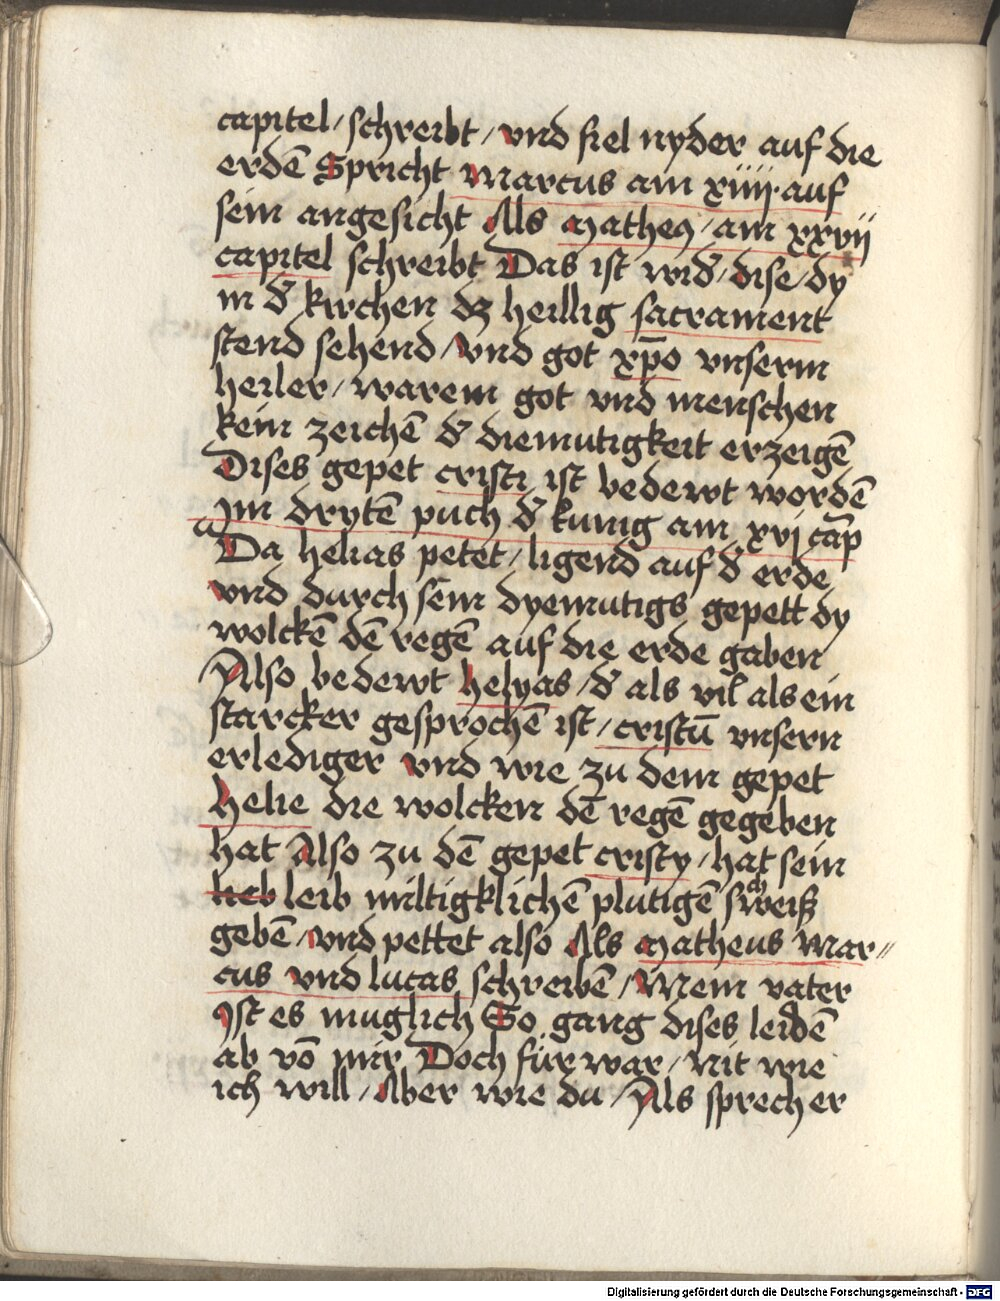 capitel / schreibt / vnd fiel nyder auf die
erdē Spricht Marcus am xiiij · auf
sein angesicht Als Matheꝯ / am xxvij
capitel schreibt Das ist wid̓ / dise / dy
in d̓ kirchen dz heillig sacrament
stend sehend / Vnd got xp̄o vnserm
heiler / warem got vnd menschen
kein zeichē d̓ diemutigkeit erzeigē
Dises gepet cristi ist bedewt wordē
jm drytē puch d̓ kunig am xvj cap̄
Da helias petet / ligend auf d̓ erde
vnd durch sein dyemutigs gepett dy
wolckē dē regē auf die erde gaben
/ Also bedewt helyas / d̓ als vil als ein
starcker gesprochē ist / cristū vnsern
erlediger vnd wie zu dem gepet
helie die wolcken dē regē gegeben
hat Also zu dē gepet cristy / hat sein
lieb leib miltigklichē plutigē schweiß
gebē / vnd pettet also Als Matheus Mar〃
cus vnd lucas schreibē / Mein vater
Ist es muglich So gang dises leidē
ab vō mir Doch für war / Nit wie
ich will / Aber wie du / Als sprech er
Digitalisierung gefördert durch die Deutsche Forschungsgemeinschaft - DFG